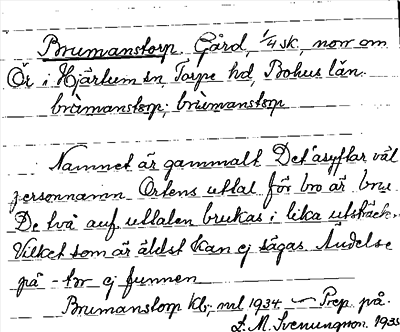 Brumanstorp. Gård, 1/4 sk, norr om
Ör i Hjärtum sn, Torpe hd, Bohus län.
brùmanstorp, brùmanstorp
Namnet är gammalt. Det åsyftar väl
personnamn. Ortens uttal för bro är bru.
De två auf. uttalen brukas i lika utsträckn.
Vilket som är äldst kan ej sägas. Ändelse
på -tor ej funnen
Brumanstorp Kbj 1934 – Prep. på.
D. M. Svenungson. 1935